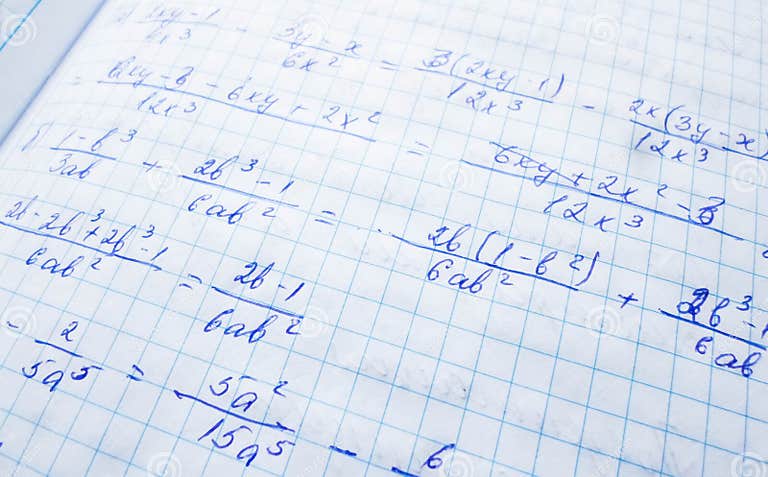 (2xy-1)/4x³ - (3y-x)/6x² = 3(2xy-1)/12x³ - 2x(3y-x)/12x³
= (6xy-3-6xy+2x²)/12x³ = (6xy+2x²-3)/12x³
б) (1-b³)/3ab + (2b³-1)/6ab² = 2b(1-b²)/6ab² + (2b³-1)/6ab
(2b-2b³+2b³-1)/6ab² = (2b-1)/6ab²
- 2/5a⁵ = 5a²/15a⁵ - 6